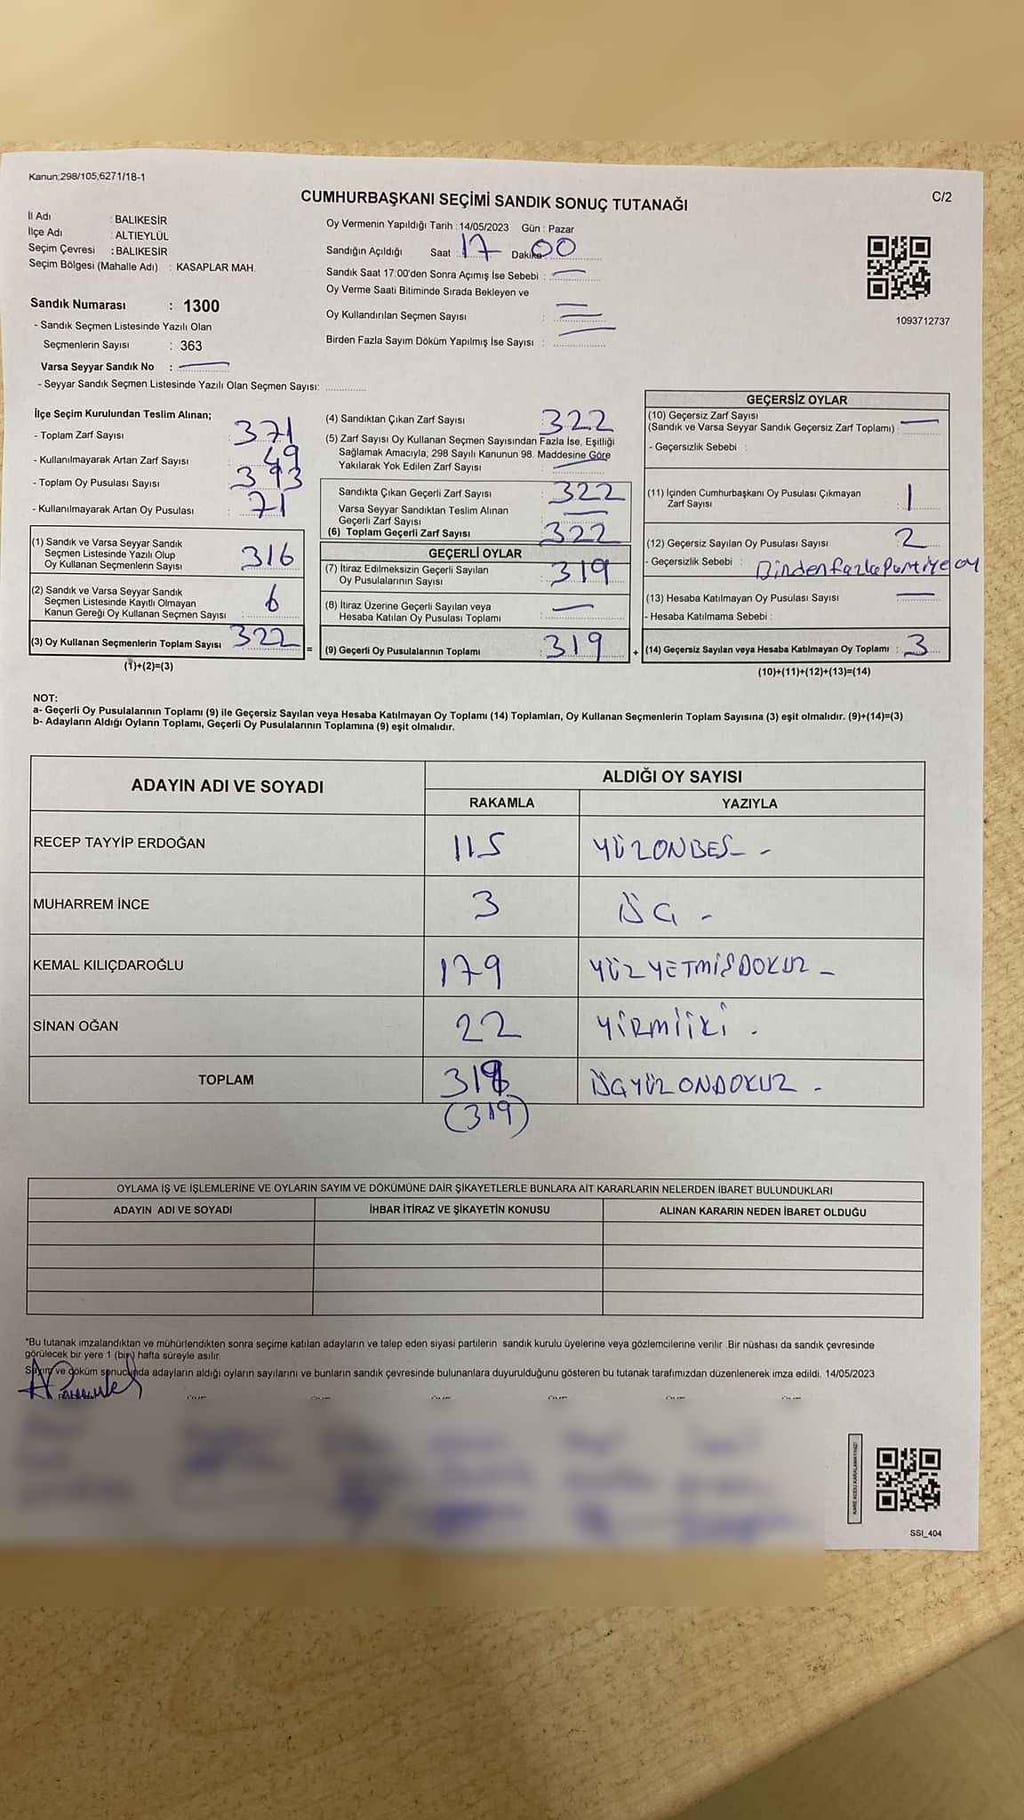 Kanun;298/105,6271/18-1
CUMHURBAŞKANI SEÇİMİ SANDIK SONUÇ TUTANAĞI
C/2
İl Adı : BALIKESİR
İlçe Adı : ALTIEYLÜL
Seçim Çevresi : BALIKESİR
Seçim Bölgesi (Mahalle Adı) : KASAPLAR MAH.
Sandık Numarası : 1300
- Sandık Seçmen Listesinde Yazılı Olan
Seçmenlerin Sayısı : 363
Varsa Seyyar Sandık No :
- Seyyar Sandık Seçmen Listesinde Yazılı Olan Seçmen Sayısı:
Oy Vermenin Yapıldığı Tarih : 14/05/2023 Gün : Pazar
Sandığın Açıldığı Saat : 17 Dakika 00
Sandık Saat 17:00'den Sonra Açımış İse Sebebi :
Oy Verme Saati Bitiminde Sırada Bekleyen ve
Oy Kullandırılan Seçmen Sayısı :
Birden Fazla Sayım Döküm Yapılmış İse Sayısı :
1093712737
İlçe Seçim Kurulundan Teslim Alınan;
- Toplam Zarf Sayısı : 371
- Kullanılmayarak Artan Zarf Sayısı : 49
- Toplam Oy Pusulası Sayısı : 393
- Kullanılmayarak Artan Oy Pusulası : 71
(1) Sandık ve Varsa Seyyar Sandık
Seçmen Listesinde Yazılı Olup
Oy Kullanan Seçmenlerin Sayısı : 316
(2) Sandık ve Varsa Seyyar Sandık
Seçmen Listesinde Kayıtlı Olmayan
Kanun Gereği Oy Kullanan Seçmen Sayısı : 6
(3) Oy Kullanan Seçmenlerin Toplam Sayısı : 322
(1)+(2)=(3)
(4) Sandıktan Çıkan Zarf Sayısı : 322
(5) Zarf Sayısı Oy Kullanan Seçmen Sayısından Fazla İse, Eşitliği
Sağlamak Amacıyla; 298 Sayılı Kanunun 98. Maddesine Göre
Yakılarak Yok Edilen Zarf Sayısı :
Sandıkta Çıkan Geçerli Zarf Sayısı : 322
Varsa Seyyar Sandıktan Teslim Alınan
Geçerli Zarf Sayısı :
(6) Toplam Geçerli Zarf Sayısı : 322
GEÇERLİ OYLAR
(7) İtiraz Edilmeksizin Geçerli Sayılan
Oy Pusulalarının Sayısı : 319
(8) İtiraz Üzerine Geçerli Sayılan veya
Hesaba Katılan Oy Pusulası Toplamı :
= (9) Geçerli Oy Pusulalarının Toplamı : 319
GEÇERSİZ OYLAR
(10) Geçersiz Zarf Sayısı
(Sandık ve Varsa Seyyar Sandık Geçersiz Zarf Toplamı) :
- Geçersizlik Sebebi :
(11) İçinden Cumhurbaşkanı Oy Pusulası Çıkmayan
Zarf Sayısı : 1
(12) Geçersiz Sayılan Oy Pusulası Sayısı : 2
- Geçersizlik Sebebi : Birden fazla Partiye oy
(13) Hesaba Katılmayan Oy Pusulası Sayısı :
- Hesaba Katılmama Sebebi :
+ (14) Geçersiz Sayılan veya Hesaba Katılmayan Oy Toplamı : 3
(10)+(11)+(12)+(13)=(14)
NOT:
a- Geçerli Oy Pusulalarının Toplamı (9) ile Geçersiz Sayılan veya Hesaba Katılmayan Oy Toplamı (14) Toplamları, Oy Kullanan Seçmenlerin Toplam Sayısına (3) eşit olmalıdır. (9)+(14)=(3)
b- Adayların Aldığı Oyların Toplamı, Geçerli Oy Pusulalarının Toplamına (9) eşit olmalıdır.
ADAYIN ADI VE SOYADI
ALDIĞI OY SAYISI
RAKAMLA YAZIYLA
RECEP TAYYİP ERDOĞAN 115 YÜZONBEŞ -
MUHARREM İNCE 3 ÜÇ -
KEMAL KILIÇDAROĞLU 179 YÜZYETMİŞDOKUZ -
SİNAN OĞAN 22 YİRMİİKİ .
TOPLAM 319 ÜÇYÜZONDOKUZ -
(319)
OYLAMA İŞ VE İŞLEMLERİNE VE OYLARIN SAYIM VE DÖKÜMÜNE DAİR ŞİKAYETLERLE BUNLARA AİT KARARLARIN NELERDEN İBARET BULUNDUKLARI
ADAYIN ADI VE SOYADI İHBAR İTİRAZ VE ŞİKAYETİN KONUSU ALINAN KARARIN NEDEN İBARET OLDUĞU
*Bu tutanak imzalandıktan ve mühürlendikten sonra seçime katılan adayların ve talep eden siyasi partilerin sandık kurulu üyelerine veya gözlemcilerine verilir. Bir nüshası da sandık çevresinde
görülecek bir yere 1 (bir) hafta süreyle asılır.
Sayım ve döküm sonucunda adayların aldığı oyların sayılarını ve bunların sandık çevresinde bulunanlara duyurulduğunu gösteren bu tutanak tarafımızdan düzenlenerek imza edildi. 14/05/2023
SSI_404